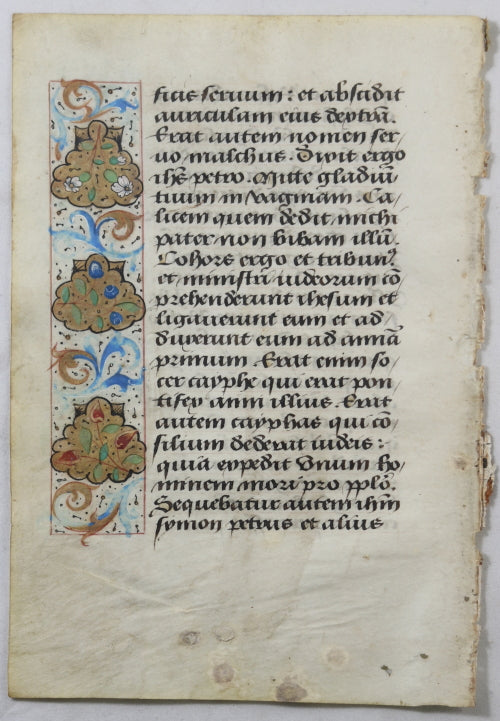 ficis seruum : et abscidit
auriculam eius dextrā.
Erat autem nomen ser/
uo malchus. Dixit ergo
ihs petro. Mitte gladiū
tuum in vaginam. Ca/
licem quem dedit michi
pater non bibam illū.
Cohors ergo et tribun9
et ministri iudeorum cō
prehenderunt ihesum et
ligauerunt eum et ad
duxerunt eum ad annā
primum. Erat enim so/
cer cayphe qui erat pon/
tifex anni illius. Erat
autem cayphas qui cō/
silium dederat iudeis :
quia expedit vnum ho/
minem mori pro pplō.
Sequebatur autem ihm
symon petrus et alius